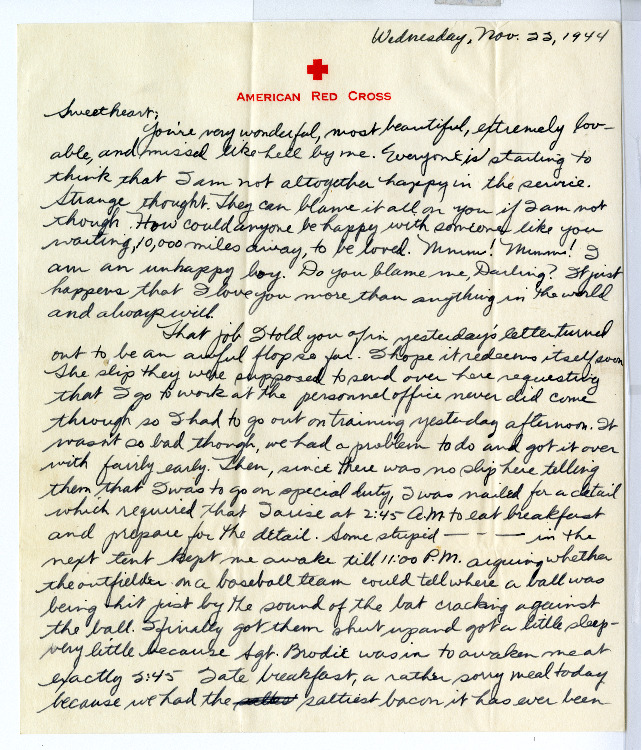 Wednesday, Nov. 22, 1944
AMERICAN RED CROSS
Sweetheart;
You're very wonderful, most beautiful, extremely lov-
able, and missed like hell by me. Everyone is starting to
think that I am not altogether happy in the service.
Strange thought. They can blame it all on you if I am not
though. How could anyone be happy with someone like you
waiting, 10,000 miles away, to be loved. Mmmm! Mmmm! I
am an unhappy boy. Do you blame me, Darling? It just
happens that I love you more than anything in the world
and always will.
That job I told you of in yesterday's letter turned
out to be an awful flop so far. I hope it redeems itself soon
The slip they were supposed to send over here requesting
that I go to work at the personnel office never did come
through so I had to go out on training yesterday afternoon. It
wasn't so bad though, we had a problem to do and got it over
with fairly early. Then, since there was no slip here telling
them that I was to go on special duty, I was nailed for a detail
which required that I arise at 2:45 A.M. to eat breakfast
and prepare for the detail. Some stupid — — — in the
next tent kept me awake till 11:00 P.M. arguing whether
the outfielder on a baseball team could tell where a ball was
being hit just by the sound of the bat cracking against
the ball. I finally got them shut up and got a little sleep-
very little because Sgt. Brodie was in to awaken me at
exactly 2:45 I ate breakfast, a rather sorry meal today
because we had the saltiest bacon it has ever been